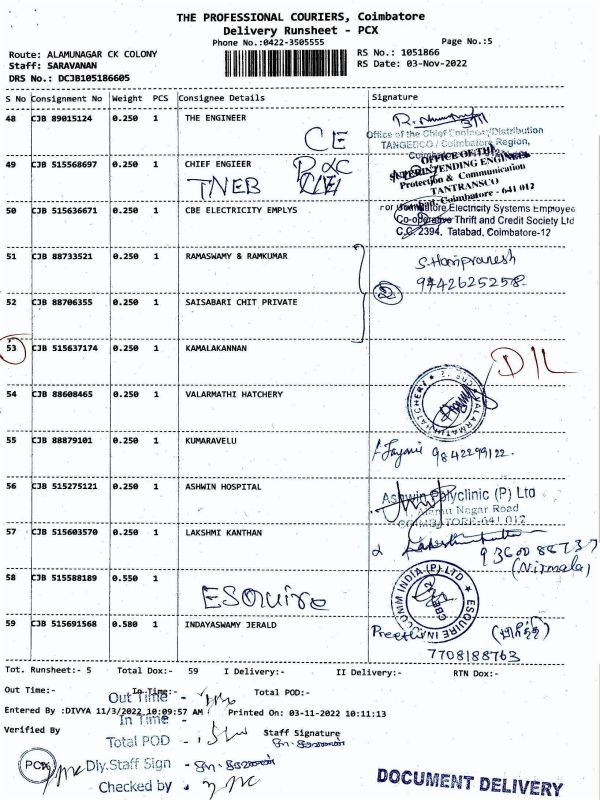 THE PROFESSIONAL COURIERS, Coimbatore
Delivery Runsheet - PCX
Phone No.:0422-3505555 Page No.:5
Route: ALAMUNAGAR CK COLONY RS No.: 1051866
Staff: SARAVANAN RS Date: 03-Nov-2022
DRS No.: DCJB105186605
S No Consignment No Weight PCS Consignee Details Signature
48 CJB 89015124 0.250 1 THE ENGINEER
CE
Office of the Chief Engineer/Distribution
TANGEDCO / Coimbatore Region,
49 CJB 515568697 0.250 1 CHIEF ENGIEER
TNEB P&C
OFFICE OF THE
SUPERINTENDING ENGINEER
Protection & Communication
TANTRANSCO
Coimbatore - 641 012
50 CJB 515636671 0.250 1 CBE ELECTRICITY EMPLYS
For Coimbatore Electricity Systems Employee
Co-operative Thrift and Credit Society Ltd
C.C. 2394, Tatabad, Coimbatore-12
51 CJB 88733521 0.250 1 RAMASWAMY & RAMKUMAR
S. Haripranesh
9442625258
52 CJB 88706355 0.250 1 SAISABARI CHIT PRIVATE
53 CJB 515637174 0.250 1 KAMALAKANNAN
D/L
54 CJB 88608465 0.250 1 VALARMATHI HATCHERY
VALARMATHI HATCHERY
55 CJB 88879101 0.250 1 KUMARAVELU
9842299122
56 CJB 515275121 0.250 1 ASHWIN HOSPITAL
Ashwin Polyclinic (P) Ltd
Alamu Nagar Road
COIMBATORE-641 012
57 CJB 515603570 0.250 1 LAKSHMI KANTHAN
(Nirmala)
58 CJB 515588189 0.550 1
ESQUIRE
ESQUIRE INDIA (P) LTD
CBE
59 CJB 515691568 0.580 1 INDAYASWAMY JERALD
Preethi
7708188763
Tot. Runsheet:- 5 Total Dox:- 59 I Delivery:- II Delivery:- RTN Dox:-
Out Time:- In Time:- Total POD:-
Out Time -
Entered By :DIVYA 11/3/2022 10:09:57 AM Printed On: 03-11-2022 10:11:13
In Time -
Verified By Staff Signature
Total POD -
PCX Dly.Staff Sign -
Checked by -
DOCUMENT DELIVERY